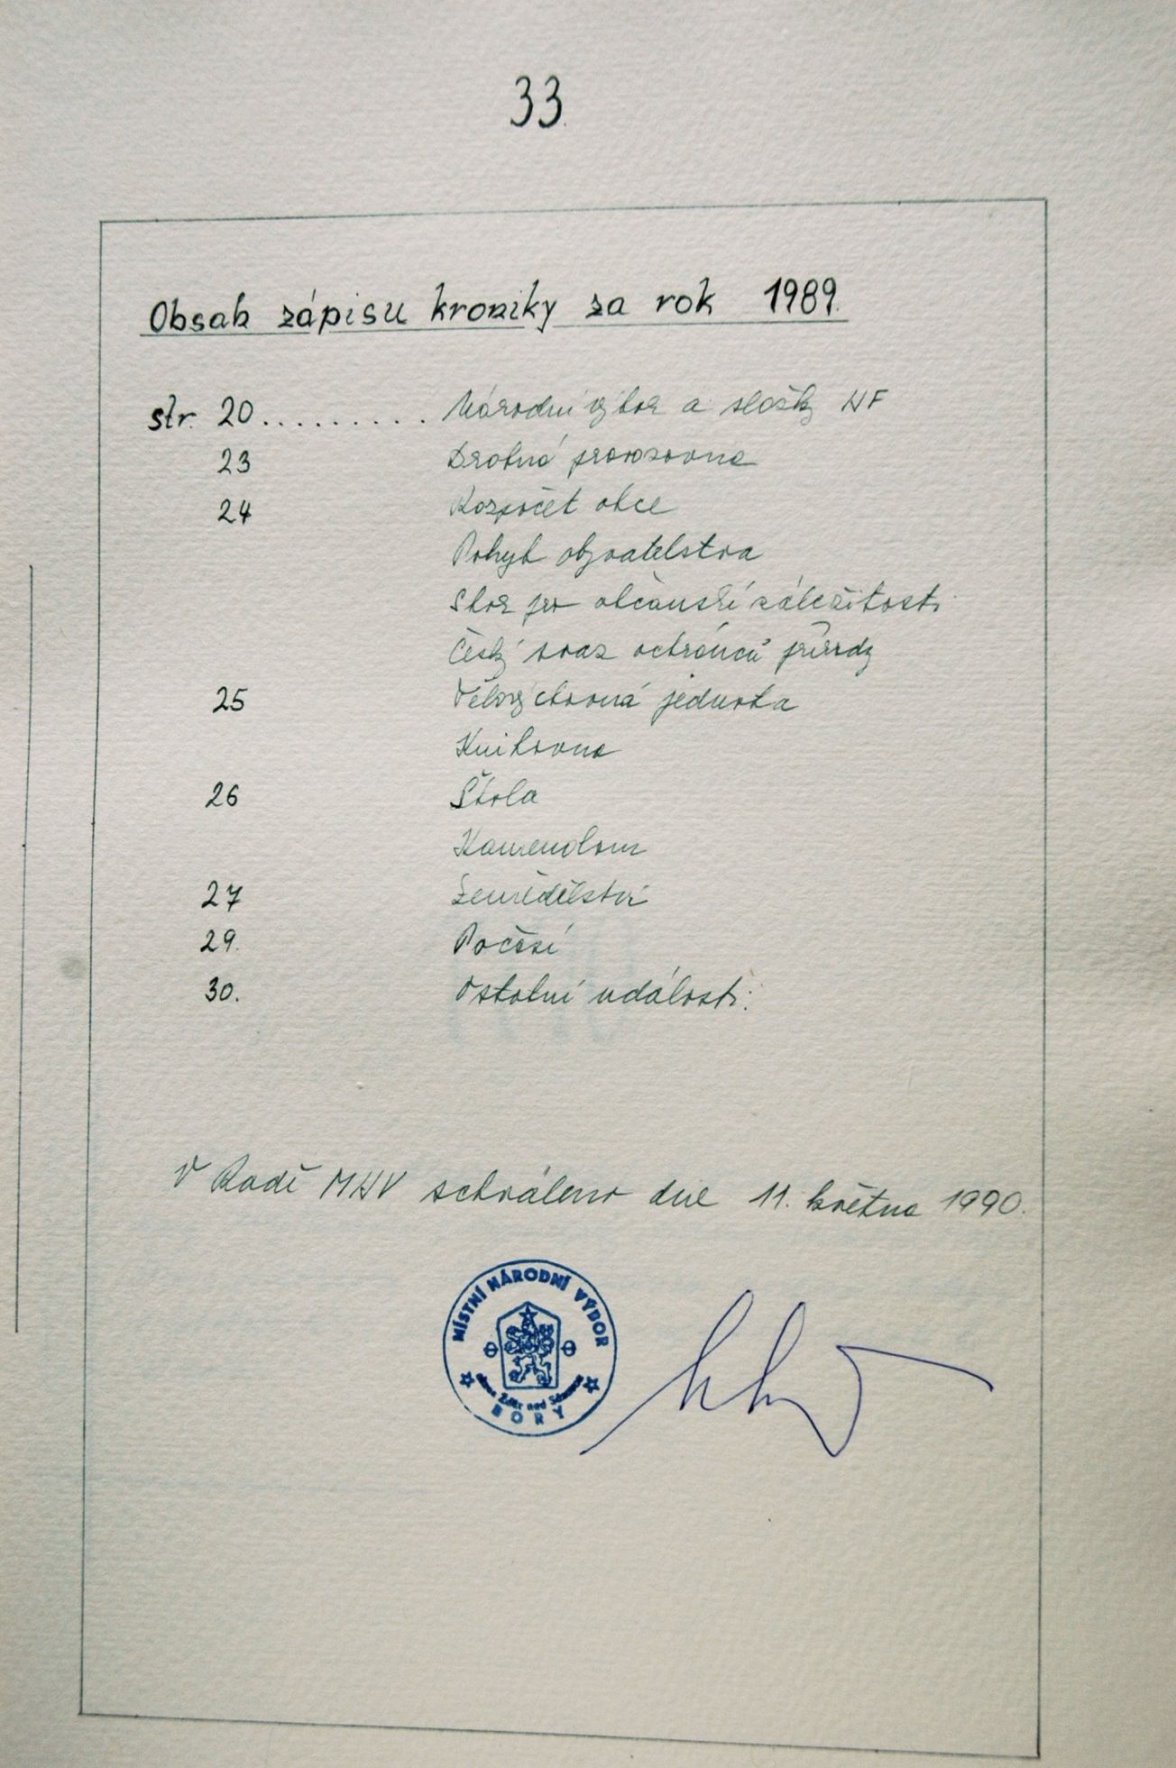 33.
Obsah zápisu kroniky za rok 1989.
str. 20.......... Národní výbor a složky NF
23 Drobná provozovna
24 Rozpočet obce
Pohyb obyvatelstva
Sbor pro občanské záležitosti
Český svaz ochránců přírody
25 Tělovýchovná jednota
Knihovna
26 Škola
Kamenolom
27 Zemědělství
29. Počasí
30. Ostatní události.
V Radě MNV schváleno dne 11. května 1990.
MÍSTNÍ NÁRODNÍ VÝBOR
okres Žďár nad Sázavou
BORY